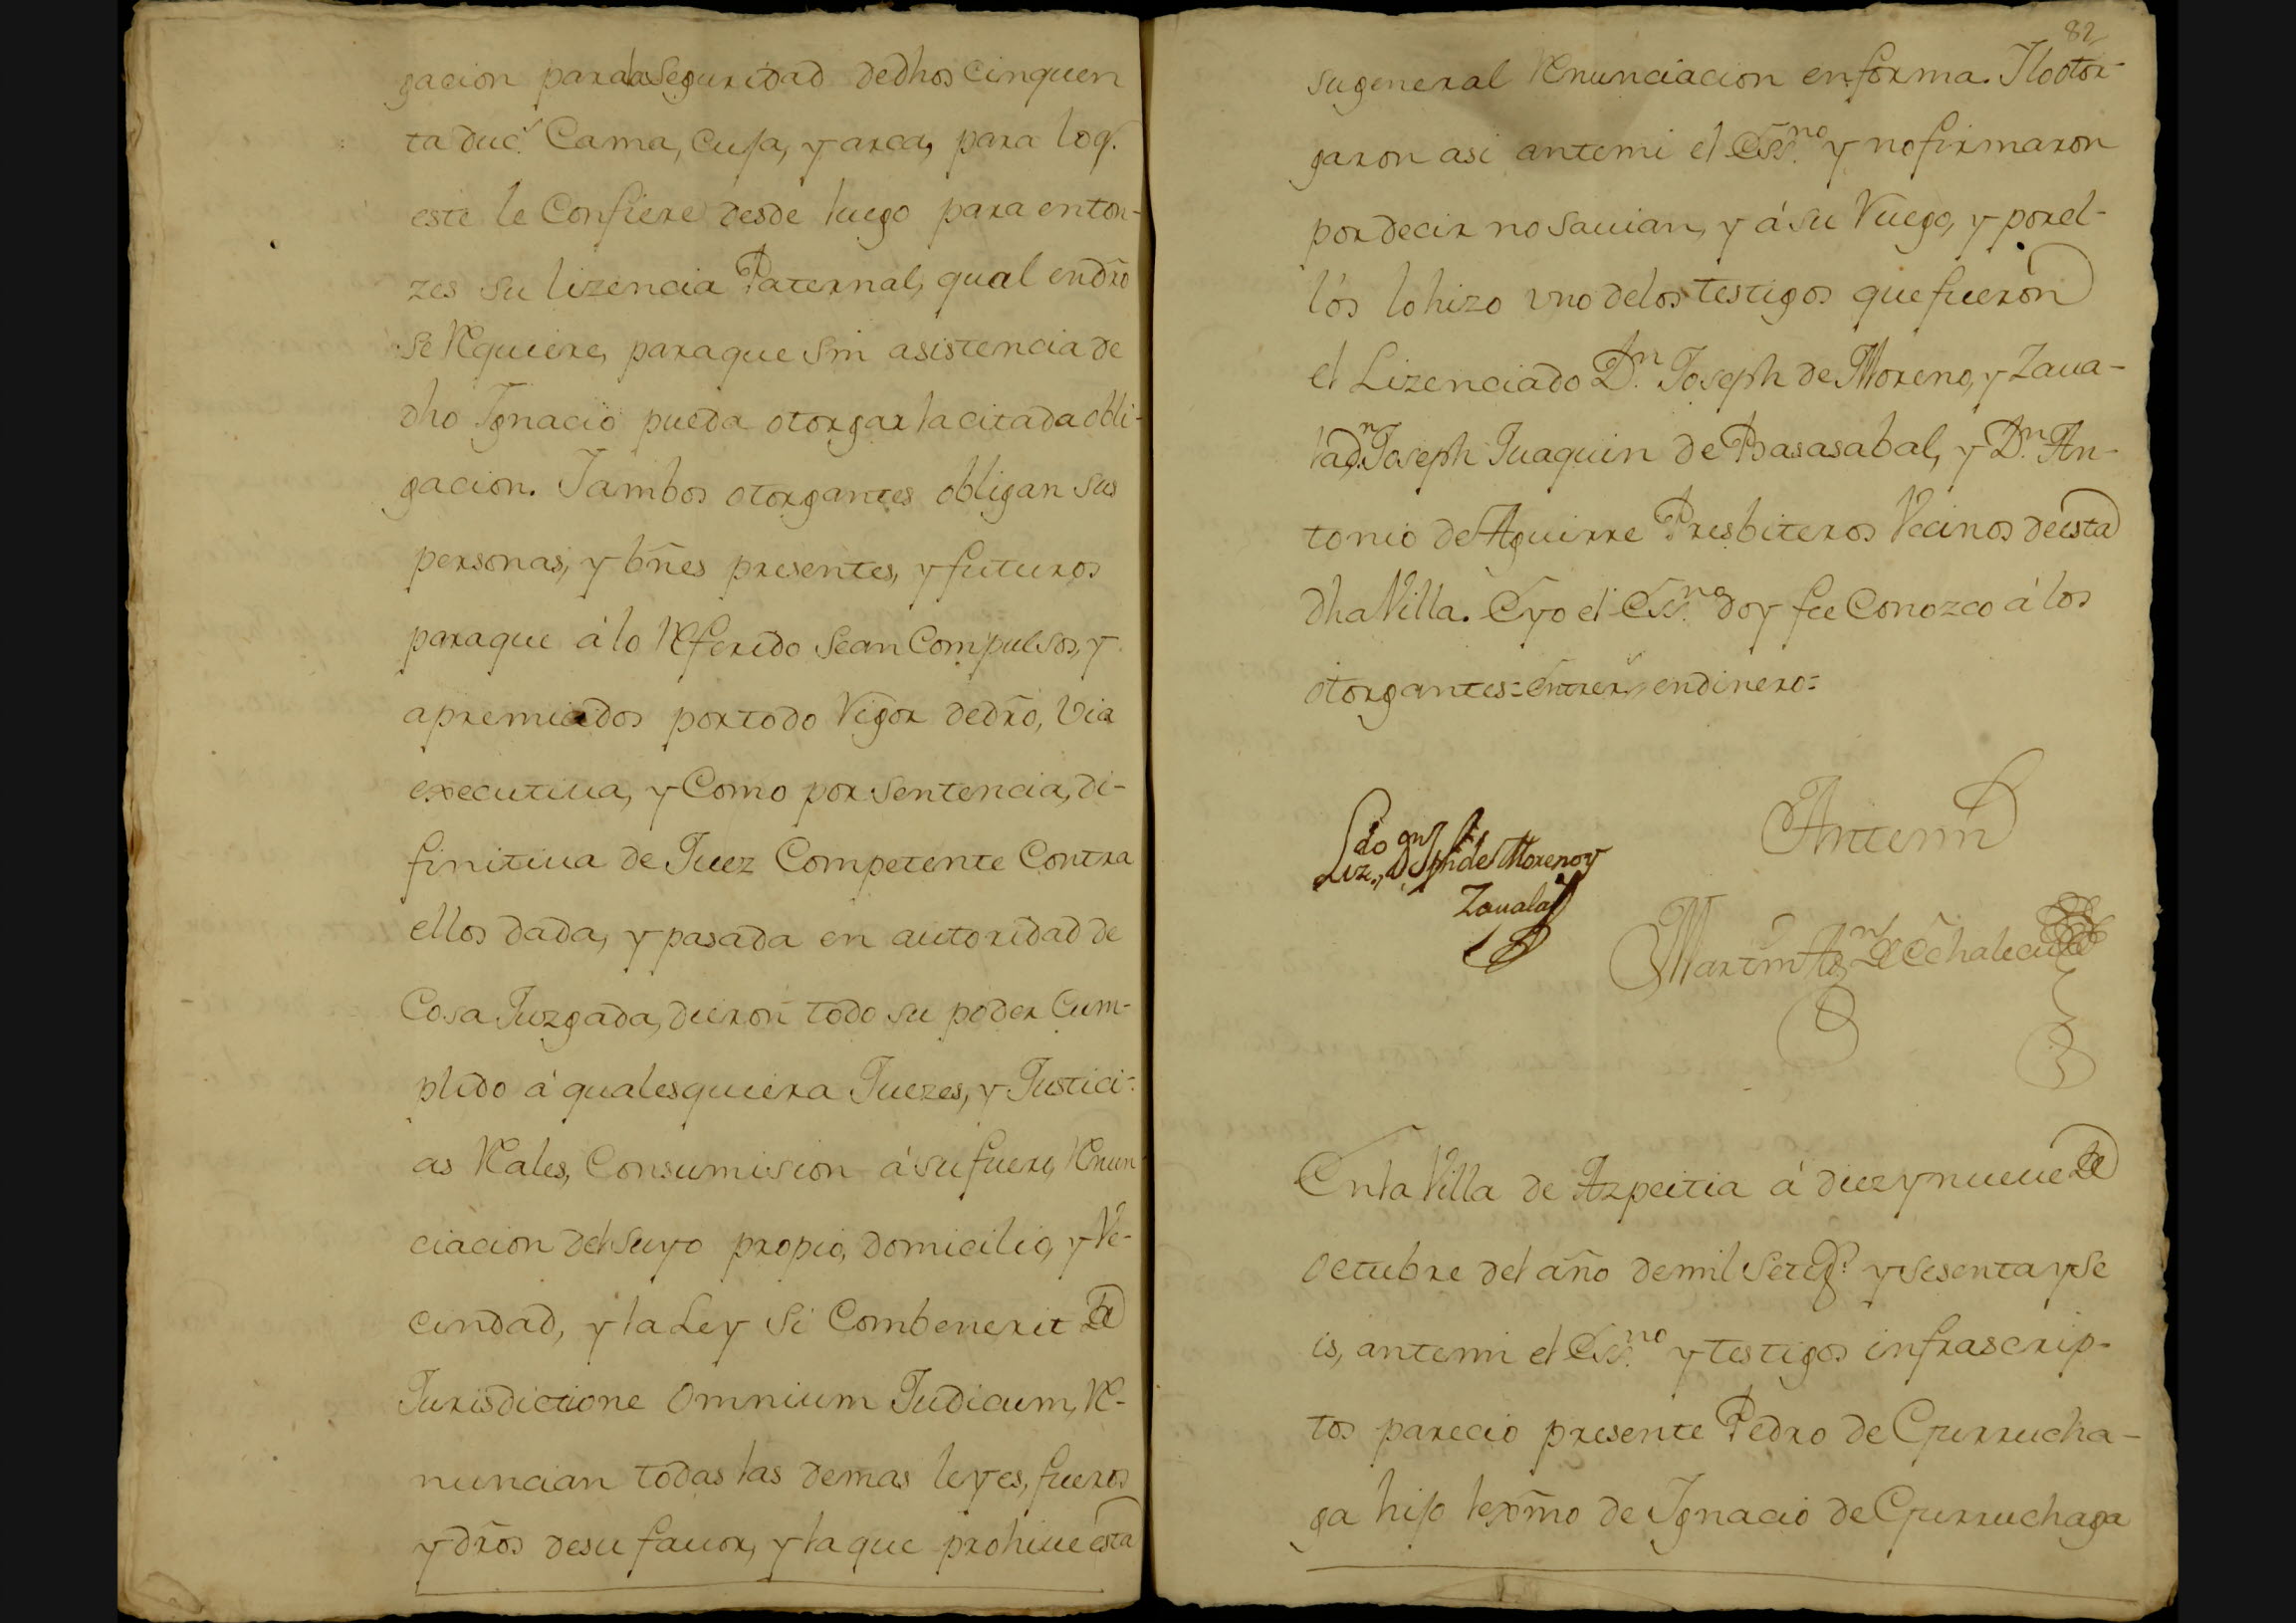 gacion para la Seguridad de dhos Cinquen
ta duc.^s Cama, Cuja, y arca, para loq.
este le Confiere desde luego para enton-
zes su lizencia Paternal, qual en dr̃o
se Requiere, paraque sin asistencia de
dho Ignacio pueda otorgar la citada obli-
gacion. Y ambos otorgantes obligan sus
personas, y bñes presentes, y futuros
paraque á lo Referido Sean Compulsos, y
apremiados por todo Vigor de dr̃o, Via
executiua, y Como por Sentencia, di-
finitiua de Juez Competente Contra
ellos dada, y pasada en autoridad de
Cosa Juzgada, dieron todo su poder Cum-
plido á qualesquiera Juezes, y Justici-
as Reales, Consumision á su fuero, Renun
ciacion del Suyo propio, domicilio, y Ve-
cindad, y la Ley Si Combenerit De
Jurisdictione Omnium Judicum, Re-
nuncian todas las demas leyes, fueros
y dr̃os de su fauor, y la que prohiue esta
82
su general Renunciacion en forma. Y lo otor-
garon asi antemi el Ess.^no y no firmaron
por decir no sauian, y á su Ruego, y por el-
los lo hizo vno de los testigos que fueron
el Lizenciado D.^n Joseph de Moreno, y Zaua-
la, D.^n Joseph Juaquin de Basasabal, y D.^n An-
tonio de Aguirre Presbiteros Vecinos de esta
dha Villa. E yo el Ess.^no doy fee Conozco á los
otorgantes = Entrer.^s en dinero =
Antemi
Liz.^do D.^n Jph de Moreno y
Zauala
Martin As.^n De Echalecu
En la Villa de Azpeitia á diez y nueue De
Octubre del año de mil Seteg.^s y sesenta y se
is, antemi el Ess.^no y testigos infrascrip-
tos parecio presente Pedro de Gurrucha-
ga hijo lexm̃o de Ignacio de Gurruchaga